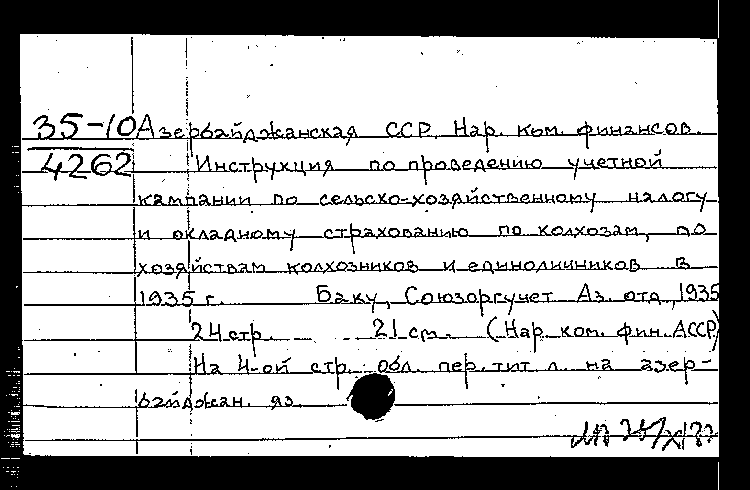 35-10 Азербайджанская ССР. Нар. ком. финансов.
4262 Инструкция по проведению учетной
кампании по сельско-хозяйственному налогу
и окладному страхованию по колхозам, по
хозяйствам колхозников и единоличников в
1935 г. Баку, Союзоргучет Аз. отд., 1935
24 стр. 21 см. (Нар. ком. фин. АССР)
На 4-ой стр. обл. пер. тит. л. на азер-
байджан. яз.